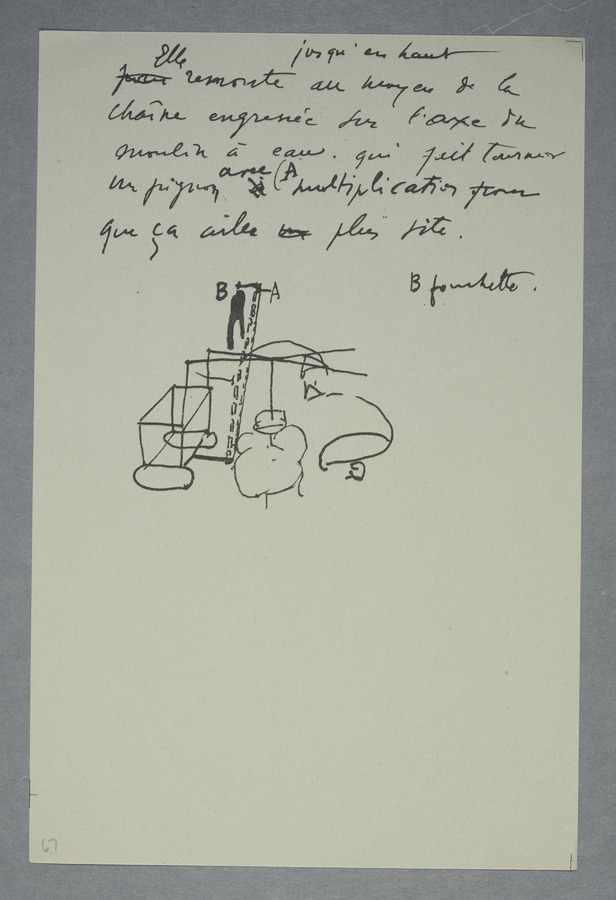 Elle jusqu'en haut
puis remonte au moyen de la
chaîne engrenée sur l'axe du
moulin à eau. qui fait tourner
un pignon avec à (A multiplication pour
que ça aille plus vite.
B fourchette.
B A
D
67